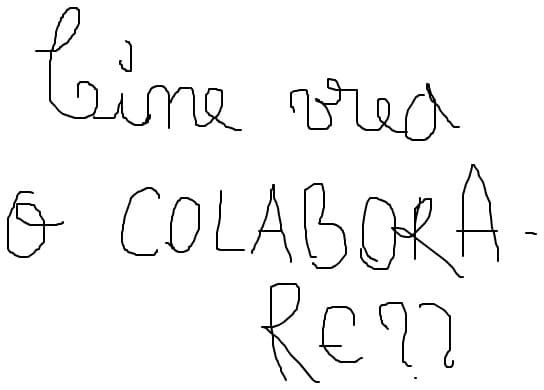 Cine vrea
o COLABORA-
RE??